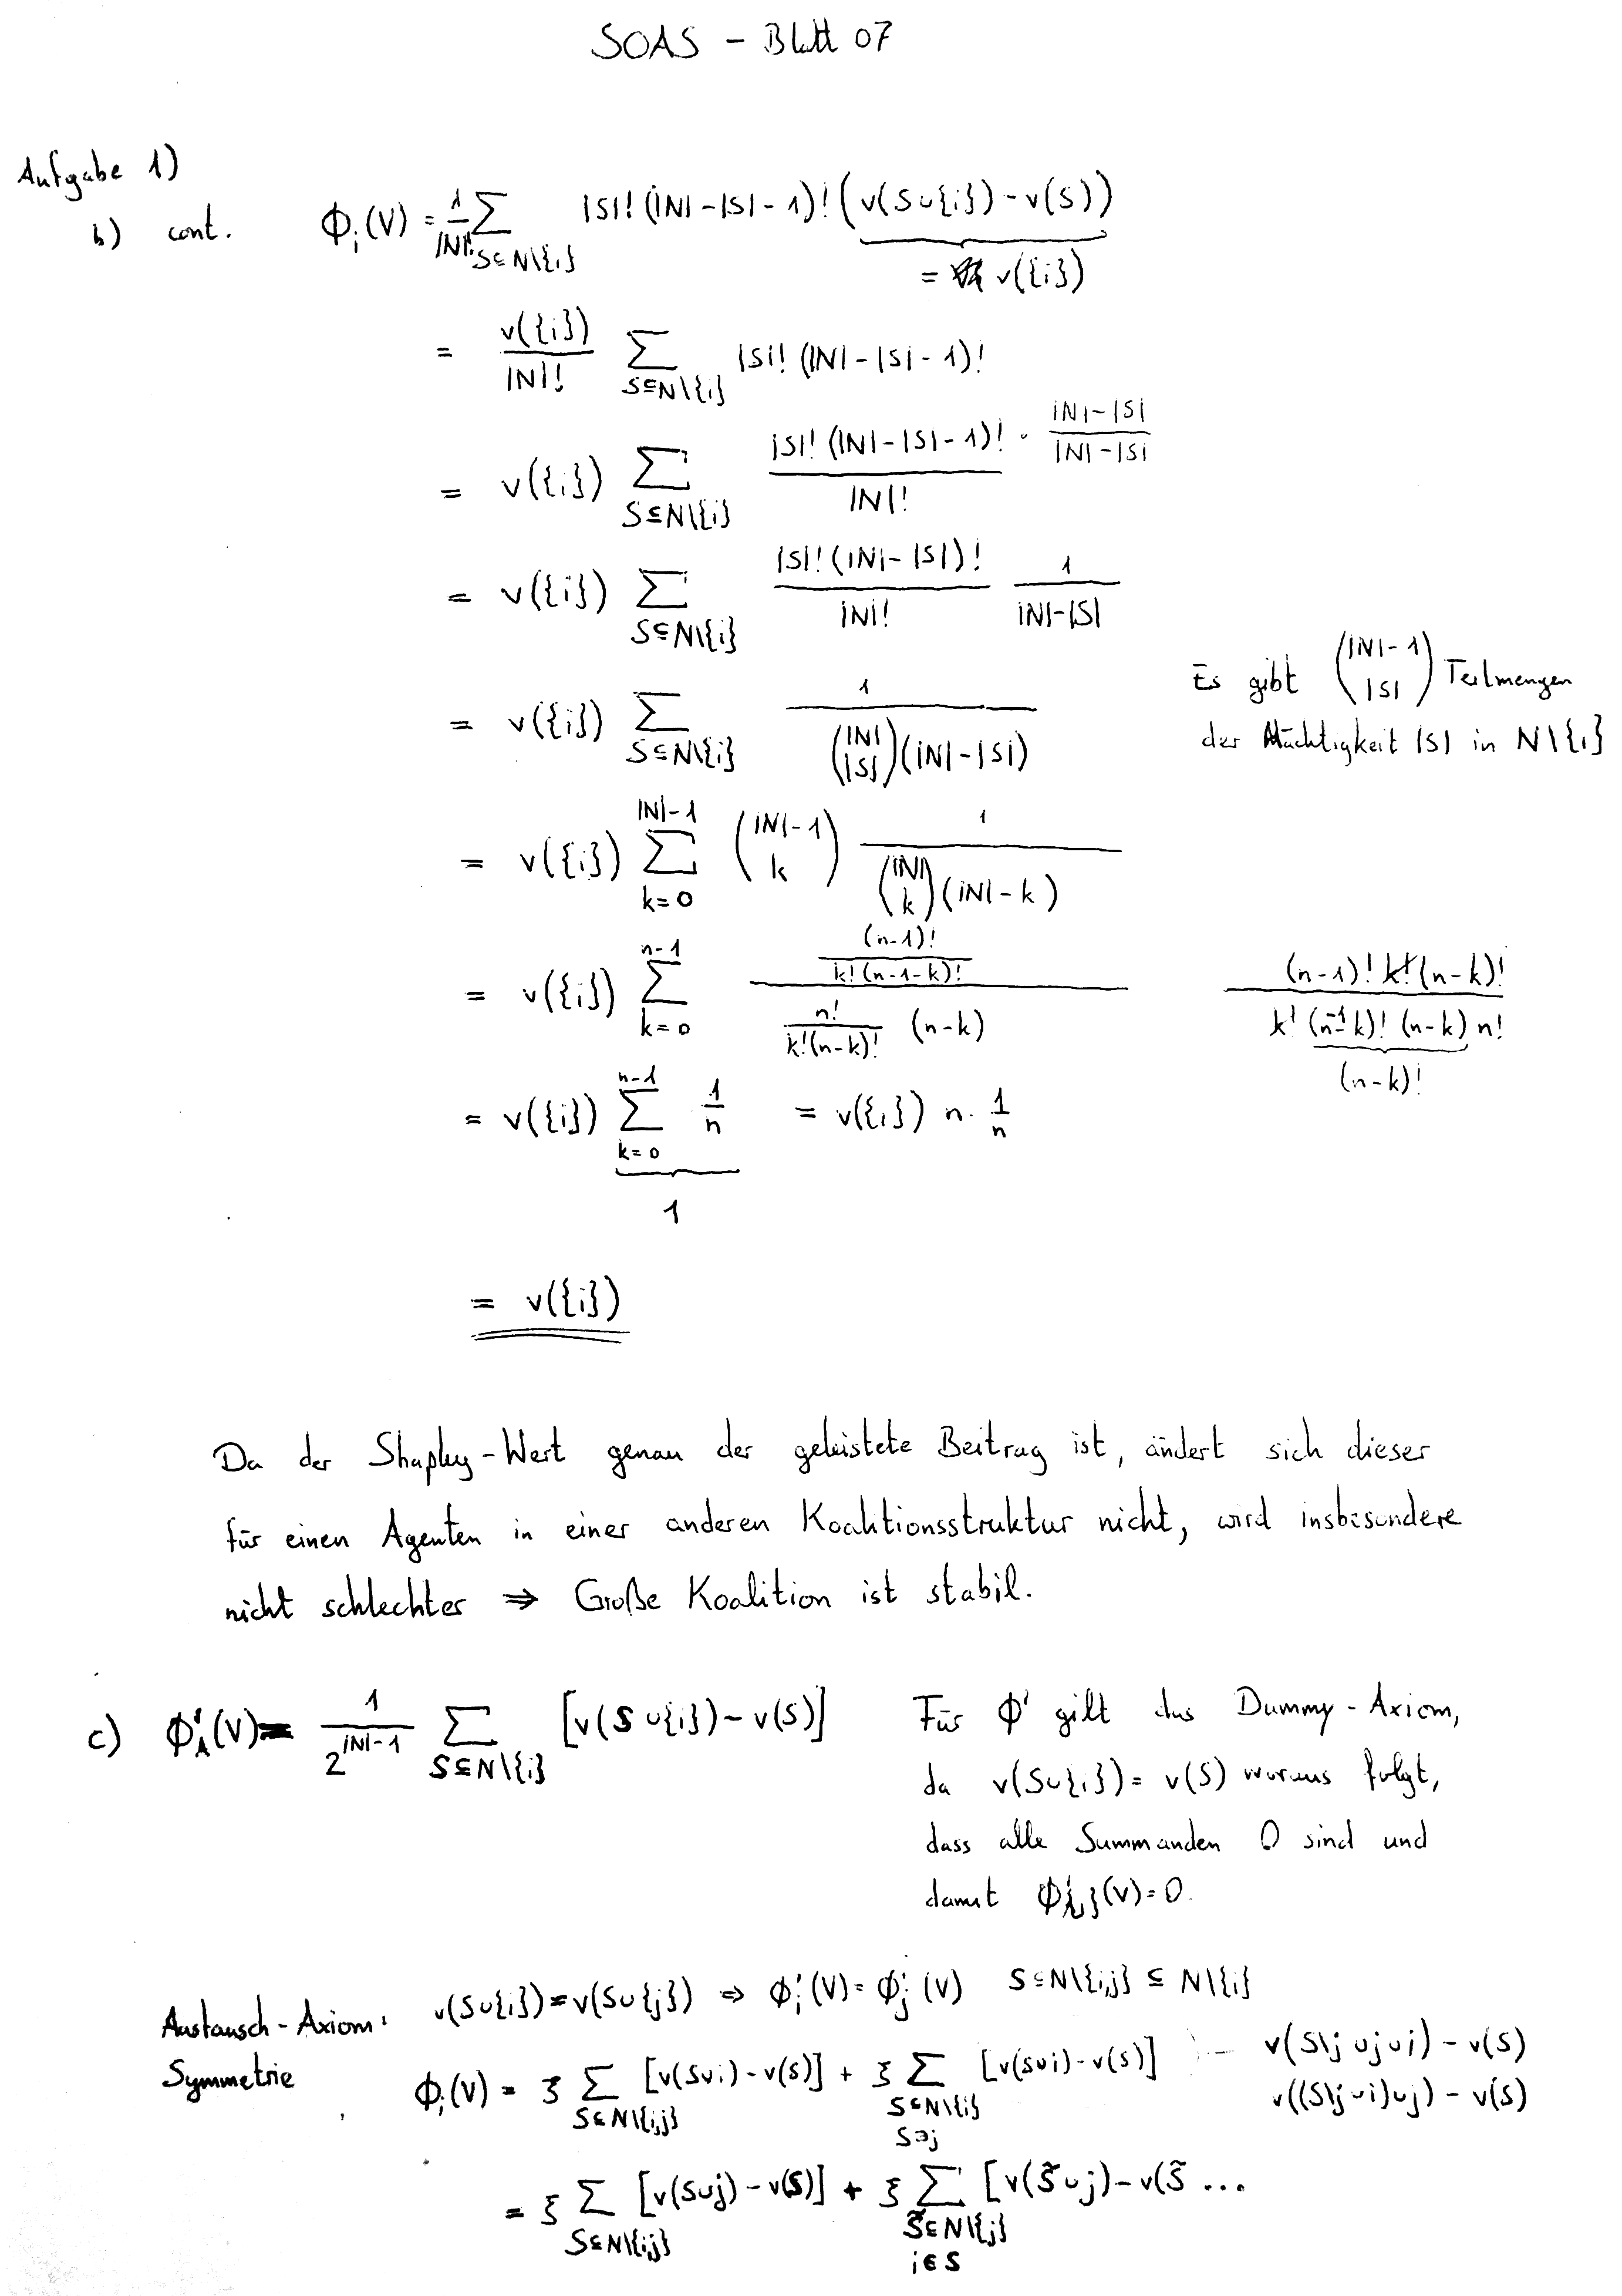 SOAS - Blatt 07
Aufgabe 1)
b) cont. ϕ_i(V) = 1/|N|! Σ_{S⊆N\{i}} |S|! (|N|-|S|-1)! (v(S∪{i}) - v(S))
= v({i})
= v({i})/|N|! Σ_{S⊆N\{i}} |S|! (|N|-|S|-1)!
= v({i}) Σ_{S⊆N\{i}} |S|! (|N|-|S|-1)!/|N|! · (|N|-|S|)/(|N|-|S|)
= v({i}) Σ_{S⊆N\{i}} |S|! (|N|-|S|)!/|N|! 1/(|N|-|S|)
= v({i}) Σ_{S⊆N\{i}} 1/((|N| |S|)(|N|-|S|))
Es gibt (|N|-1 |S|) Teilmengen
der Mächtigkeit |S| in N\{i}
= v({i}) Σ_{k=0}^{|N|-1} (|N|-1 k) 1/((|N| k)(|N|-k))
= v({i}) Σ_{k=0}^{n-1} ((n-1)!/(k!(n-1-k)!))/(n!/(k!(n-k)!) (n-k)) (n-1)! k! (n-k)!/(k! (n-1-k)! (n-k) n!)
(n-k)!
= v({i}) Σ_{k=0}^{n-1} 1/n = v({i}) n · 1/n
1
= v({i})
Da der Shapley-Wert genau der geleistete Beitrag ist, ändert sich dieser
für einen Agenten in einer anderen Koalitionsstruktur nicht, wird insbesondere
nicht schlechter ⇒ Große Koalition ist stabil.
c) ϕ'_i(V) = 1/2^{|N|-1} Σ_{S⊆N\{i}} [v(S∪{i}) - v(S)]
Für ϕ' gilt das Dummy-Axiom,
da v(S∪{i}) = v(S) woraus folgt,
dass alle Summanden 0 sind und
damit (V) = 0.
Austausch-Axiom: v(S∪{i}) = v(S∪{j}) ⇒ ϕ'_i(V) = ϕ'_j(V) S⊆N\{i,j} ⊆ N\{i}
Symmetrie
ϕ_i(V) = ξ Σ_{S⊆N\{i,j}} [v(S∪i) - v(S)] + ξ Σ_{S⊆N\{i} S∋j} [v(S∪i) - v(S)]
v(S\j ∪ j ∪ i) - v(S)
v((S\j ∪ i) ∪ j) - v(S)
= ξ Σ_{S⊆N\{i,j}} [v(S∪j) - v(S)] + ξ Σ_{S̃⊆N\{j} i∈S} [v(S̃∪j) - v(S̃ ...